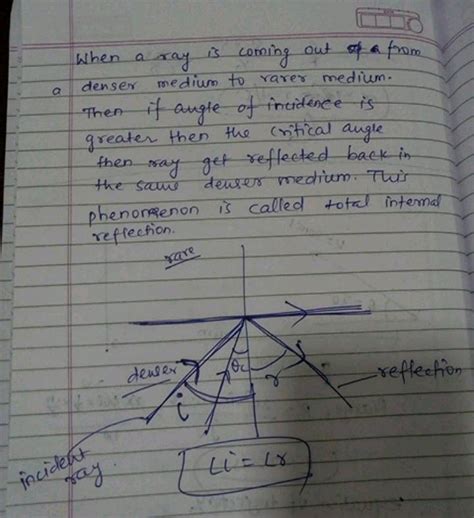 When a ray is coming out of a from
a denser medium to rarer medium.
Then if angle of incidence is
greater then the critical angle
then ray get reflected back in
the same denser medium. This
phenomenon is called total internal
reflection.
rare
denser
θc
i
r
reflection
incident
ray
∠i = ∠r